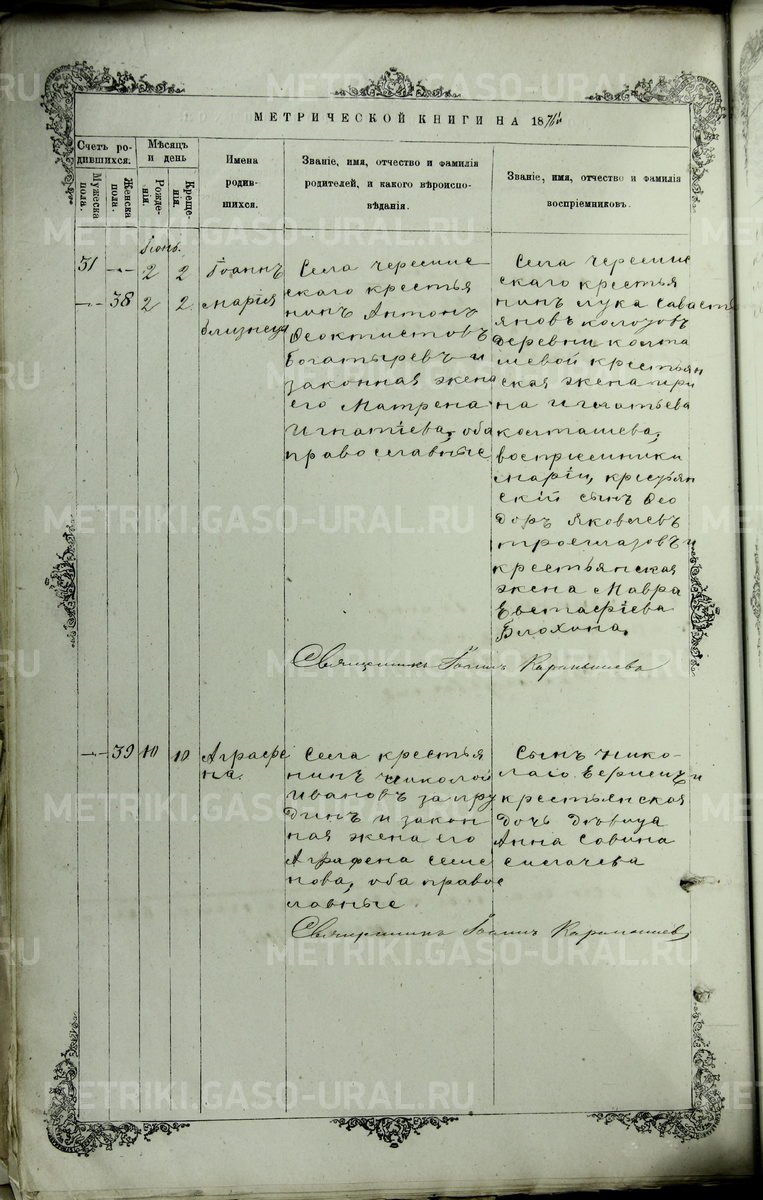 МЕТРИЧЕСКОЙ КНИГИ НА 1876й
Счетъ ро-
дившихся.
Мужеска
пола.
Женска
пола.
Мѣсяцъ
и день
Рожде-
нія.
Креще-
нія.
Имена
родив-
шихся.
Званіе, имя, отчество и фамилія
родителей, и какого вѣроиспо-
вѣданія.
Званіе, имя, отчество и фамилія
воспріемниковъ.
Іюнь.
51 -"- 2 2 Іоаннъ
-"- 38 2 2 Марія
близнецы
Села черемис
скаго крестья
нинъ Антонъ
Ѳеоктистовъ
Богатыревъ и
законная жена
его Матрена
Игнатіева, оба
православные
Села черемис
скаго крестья
нинъ Лука Савастья
яновъ
деревни колта
шевой крестьян
ская жена Ири
на Игнатьева
колташева,
восприемники
Маріи, крестьян
скій сынъ Ѳео
доръ Яковлевъ
и
крестьянская
жена Мавра
Евстафіева
Блохина.
Священникъ Іоаннъ
-"- 39 10 10 Аграфе
на.
Села крестья
нинъ Николай
Ивановъ запру
динъ и закон
ная жена его
Аграфена Семе
нова, оба правос
лавные
Сынъ Нико-
лаю и
крестьянская
дочь дѣвица
Анна Савина
сигачева
Священникъ Іоаннъ
METRIKI.GASO-URAL.RU